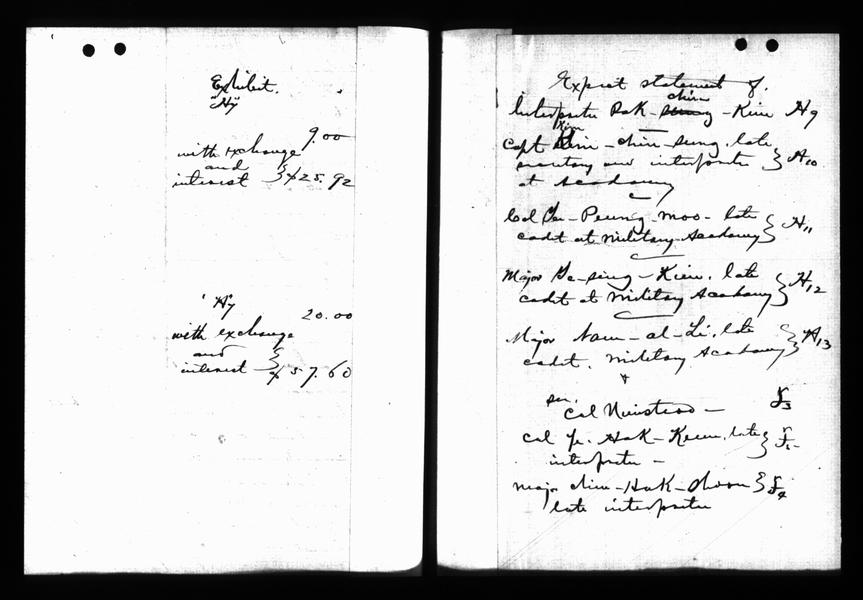 Exhibit.
"H7"
9.00
with exchange
and
interest } $25.92
"H7"
20.00
with exchange
and
interest } $57.60
Expect statement of.
chin
Interpreter Pak - - Kiem H9
Kim
Capt - chin - sung, late
secretary and interpreter } H10
at Academy
Col Ye - Peung - moo - late
cadt at military Academy } H11
Major Ye - sing - Kiem, late
cadet at military Academy } H12
Major Nam - al - Li, late
cadet, military Academy } H13
Col Nienstead -
Col Ye. Hak - Keun, late
interpreter -
major chin - Hak - Choon
late interpreter